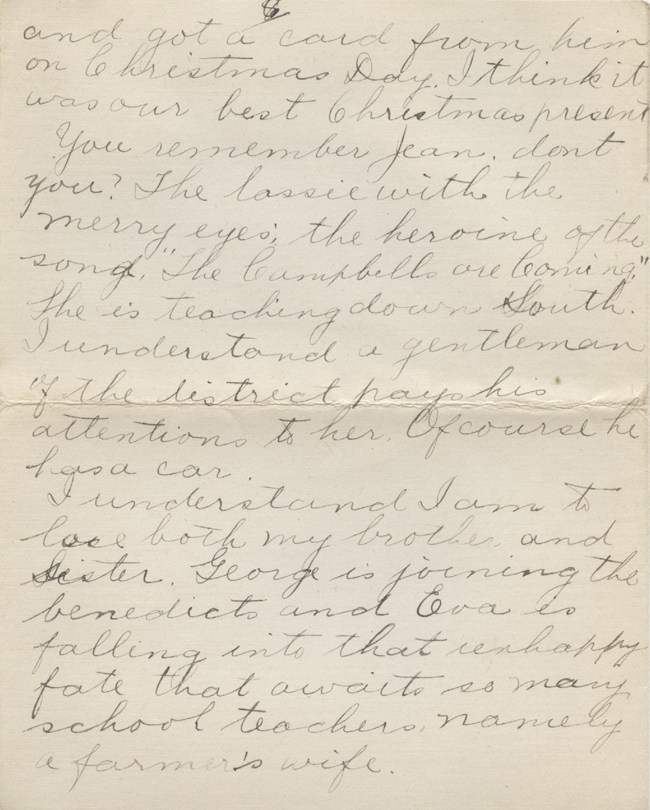 6
and got a card from him
on Christmas Day. I think it
was our best Christmas present
You remember Jean. dont
you? The lassie with the
merry eyes; the heroine of the
song, "The Campbells are Coming,"
She is teaching down South.
I understand a gentleman
of the district pays his
attentions to her. Of course he
has a car.
I understand I am to
lose both my brother and
sister. George is joining the
benedicts and Eva is
falling into that unhappy
fate that awaits so many
school teachers, namely
a farmer's wife.